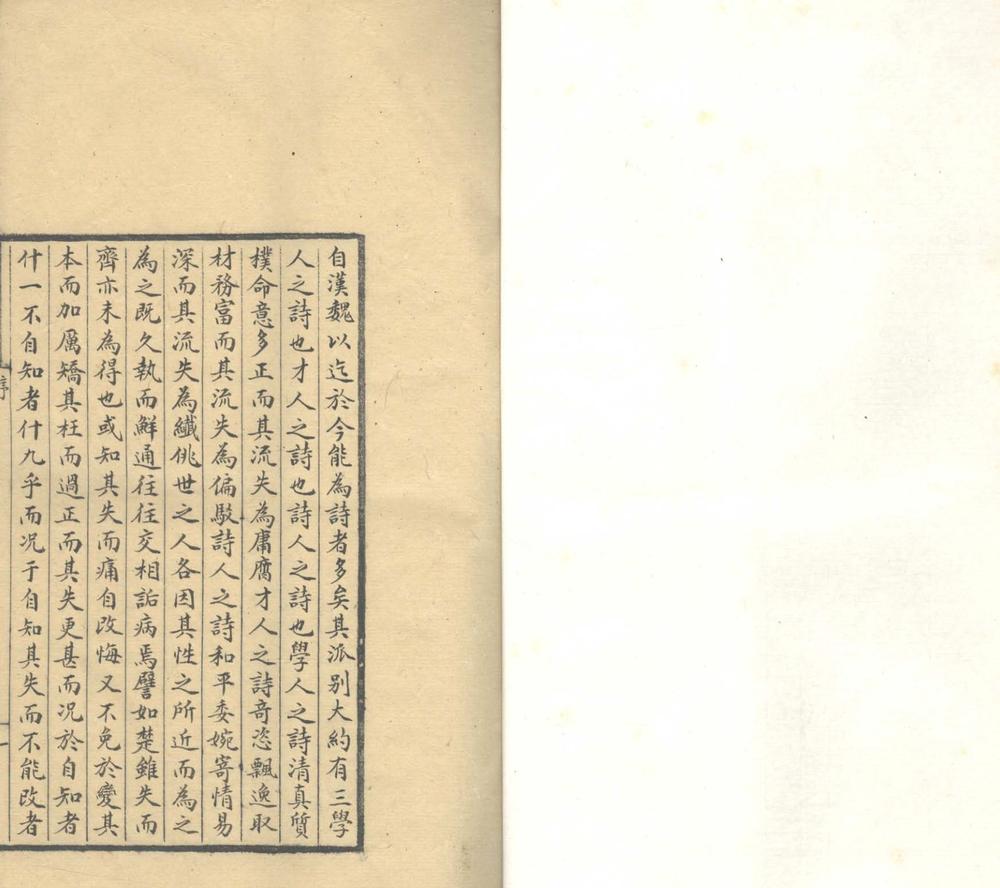 自漢魏以迄於今能為詩者多矣其派別大約有三學
人之詩也才人之詩也詩人之詩也學人之詩清真質
樸命意多正而其流失為庸腐才人之詩奇恣飄逸取
材務富而其流失為偏駁詩人之詩和平委婉寄情易
深而其流失為纖佻世之人各因其性之所近而為之
為之既久執而鮮通往往交相詬病焉譬如楚雖失而
齊亦未為得也或知其失而痛自改悔又不免於變其
本而加厲矯其枉而過正而其失更甚而况於自知者
什一不自知者什九乎而况于自知其失而不能改者
序
一